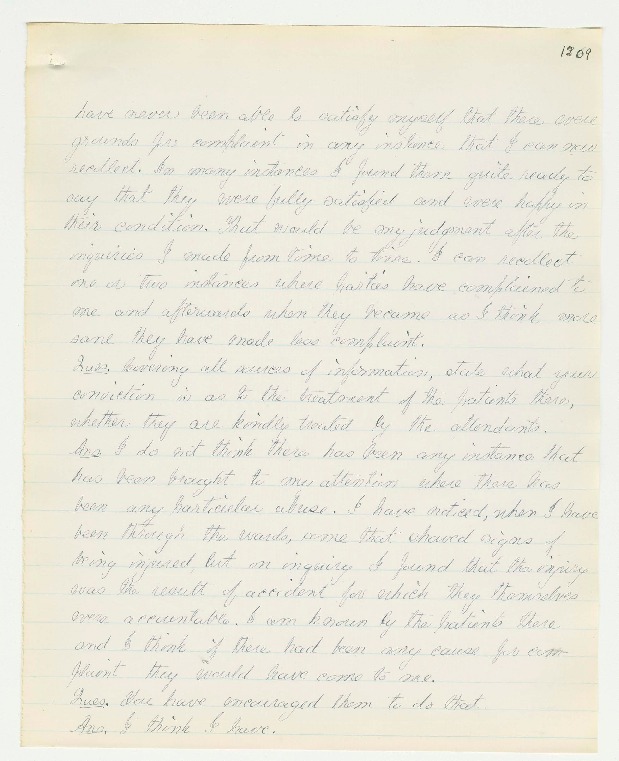 1209
have never been able to satisfy myself that there were
grounds for complaint in any instance that I can now
recollect. In many instances I found them quite ready to
say that they were fully satisfied and were happy in
their condition. That would be my judgment after the
inquiries I made from time to time. I can recollect
one or two instances where parties have complained to
me and afterwards when they became as I think more
sane they have made less complaint.
Ques. Reviewing all sources of information, state what your
conviction is as to the treatment of the patients there,
whether they are kindly treated by the attendants.
Ans I do not think there has been any instance that
has been brought to my attention where there has
been any particular abuse. I have noticed, when I have
been through the wards, some that showed signs of
being injured, but on inquiry I found that the injury
was the result of accident for which they themselves
were accountable. I am known by the patients there
and I think if there had been any cause for com-
plaint they would have come to me.
Ques. You have encouraged them to do that
Ans. I think I have.